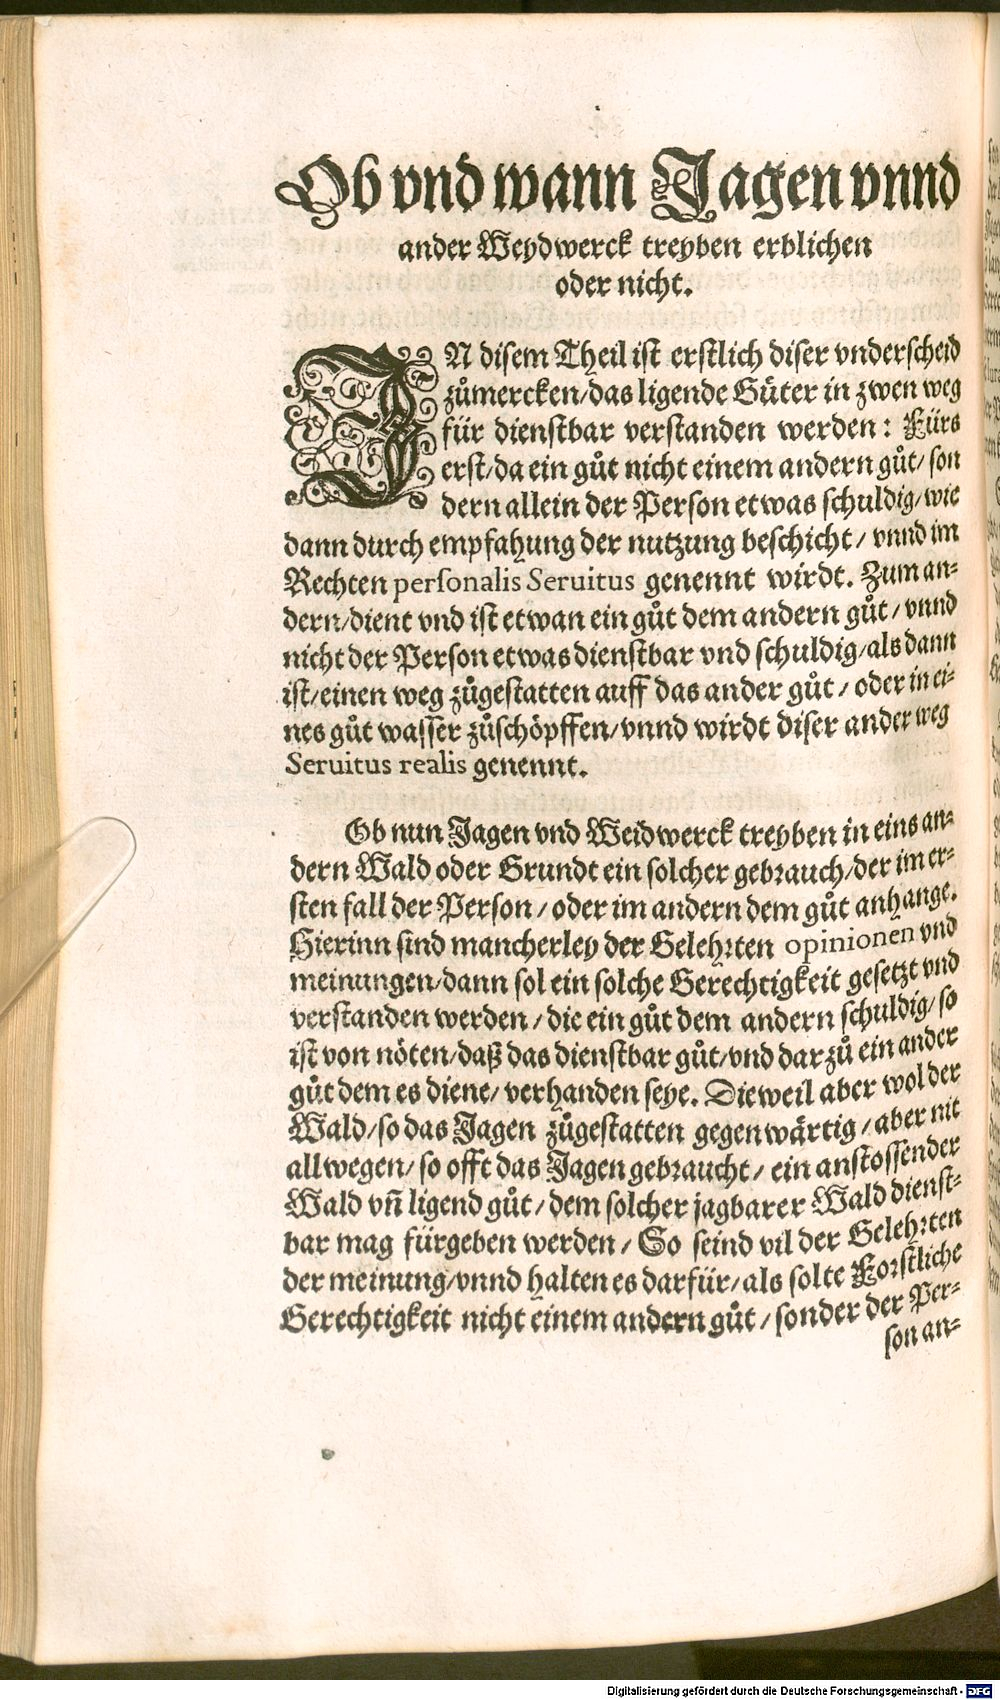 Ob vnd wann Jagen vnnd
ander Weydwerck treyben erblichen
oder nicht.
IN disem Theil ist erstlich diser vnderscheid
zůmercken/das ligende Güter in zwen weg
für dienstbar verstanden werden: Fürs
erst/da ein gůt nicht einem andern gůt/son
dern allein der Person etwas schuldig/wie
dann durch empfahung der nutzung beschicht/vnnd im
Rechten personalis Seruitus genennt wirdt. Zum an-
dern/dient vnd ist etwan ein gůt dem andern gůt/vnnd
nicht der Person etwas dienstbar vnd schuldig/als dann
ist/einen weg zůgestatten auff das ander gůt/oder in ei-
nes gůt wasser zůschöpffen/vnnd wirdt diser ander weg
Seruitus realis genennt.
Ob nun Jagen vnd Weidwerck treyben in eins an-
dern Wald oder Grundt ein solcher gebrauch/der im er-
sten fall der Person/oder im andern dem gůt anhange.
Hierinn sind mancherley der Gelehrten opinionen vnd
meinungen/dann sol ein solche Gerechtigkeit gesetzt vnd
verstanden werden/die ein gůt dem andern schuldig/so
ist von nöten/daß das dienstbar gůt/vnd darzů ein ander
gůt dem es diene/verhanden seye. Dieweil aber wol der
Wald/so das Jagen zůgestatten gegenwärtig/aber nit
allwegen/so offt das Jagen gebraucht/ein anstossender
Wald vñ ligend gůt/dem solcher jagbarer Wald dienst-
bar mag fürgeben werden/So seind vil der Gelehrten
der meinung/vnnd halten es darfür/als solte Forstliche
Gerechtigkeit nicht einem andern gůt/sonder der Per-
son an-
Digitalisierung gefördert durch die Deutsche Forschungsgemeinschaft - DFG